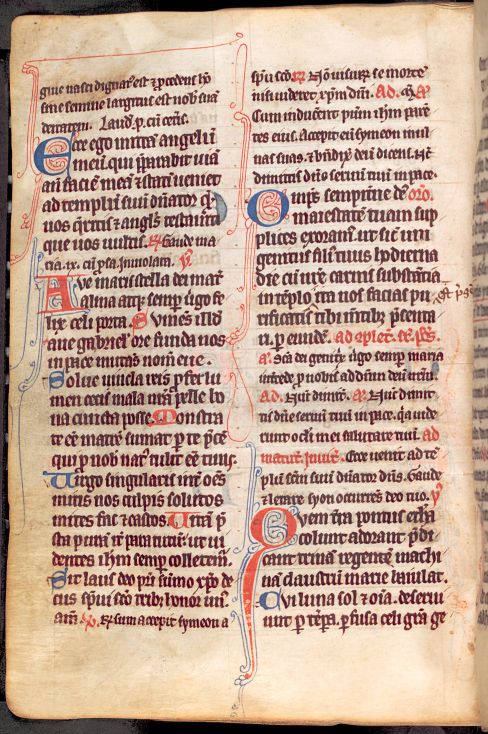 gine nasci dignat' est & pcedens ho
sine semine largitus est nob suā
deitatem. Laud. p. cū cetis.
Ecce ego mitto angelū
meū. qui pparabit uiā
an faciē meā & statī ueniet
ad templū suū dn̄ator q̄
uos q̄ritis & angl's testamti
que uos uultis. R Gaude ma
ria. ix. cū psa. Inuiolata. y
Aue maris stella dei mat
alma atq semp uirgo fe
lix celi porta. Sumēs illd
aue gabriel' ore funda nos
in pace mutās nomē eue.
Solue uincla reis pfer lu
men cecis mala nrā pelle bo
na cuncta posce. Monstra
te eē matrē sumat p te pce
qui p nob nat' tulit eē tuus.
Uirgo singularis int om̄s
mitis nos culpis solutos
mites fac & castos. Uitā p
sta purā it para tutū ut ui
dentes ihm semp colletem.
Sit laus deo pri sūmo xpo de
cus spui sco trib; honor un'
am̄. Et sum accepit symeon a
spu sco R Nō uisuꝝ se morte
nisi uideret xpm dn̄i. Ad. A
Cum inducent puꝝ ihm pare
tes eius. Accepit eū symeon in ul
nas suas. & bn̄dix deū dicens. Nc
dimittis dn̄e seruū tuū in pace.
Omps sempitne ds oro.
maiestatē tuam sup
plices exoram'. ut sic uni
genitus fili' tuus hodierna
die cū nr̄e carnis substātia
in tēplo
ita nos facias pu
rificatis tibi mtib; psenta
ri. p eundē. ad
A. Scā dei genitx uirgo semp maria
intcede p nobis ad dn̄m deū nr̄m
Ad. Nūc dimitt. A. Nūc dimit
tis dn̄e seruū tuū in pace. qa uide
runt ocli mei salutare tuū. ad
matut. Inuit. Ecce uenit ad te
plū scm̄ suū dn̄ator dn̄s. Gaude
& letare syon occurrēs deo tuo. y
Quem tra pontus etha
colunt adorant pdi
cant trinā regentē machi
nā claustrū marie baiulat.
Cui luna sol & oīa. deserui
unt p tēpa. pfusa celi gra ge